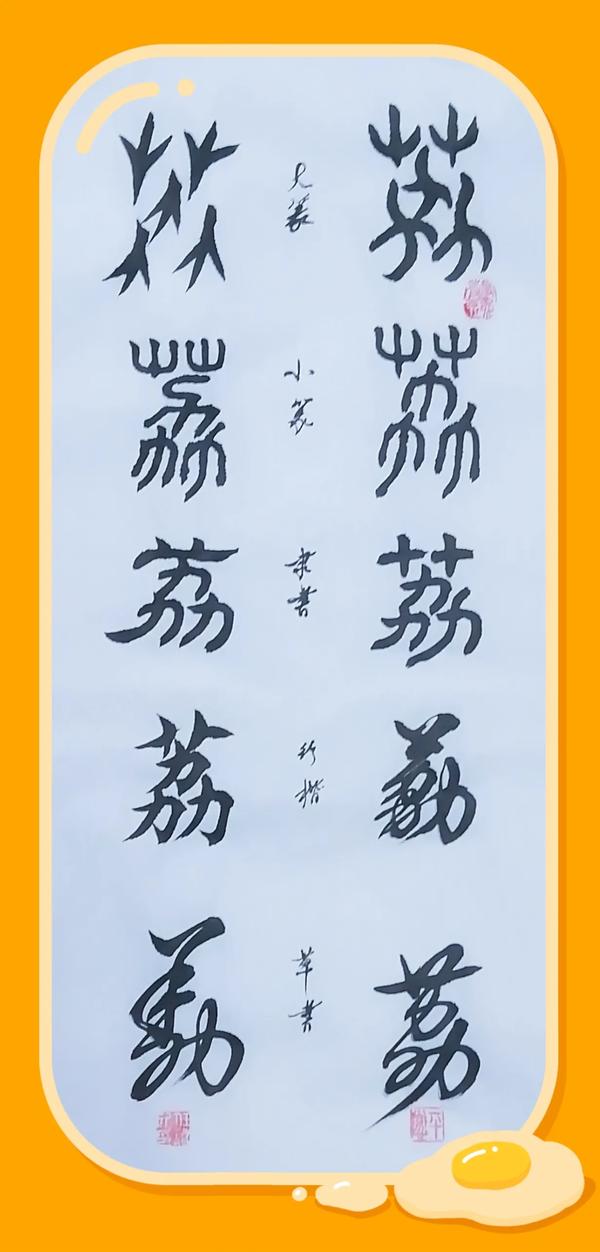 荔 大篆 荔
荔 小篆 荔
荔 隶書 荔
荔 行楷 荔
荔 草書 荔